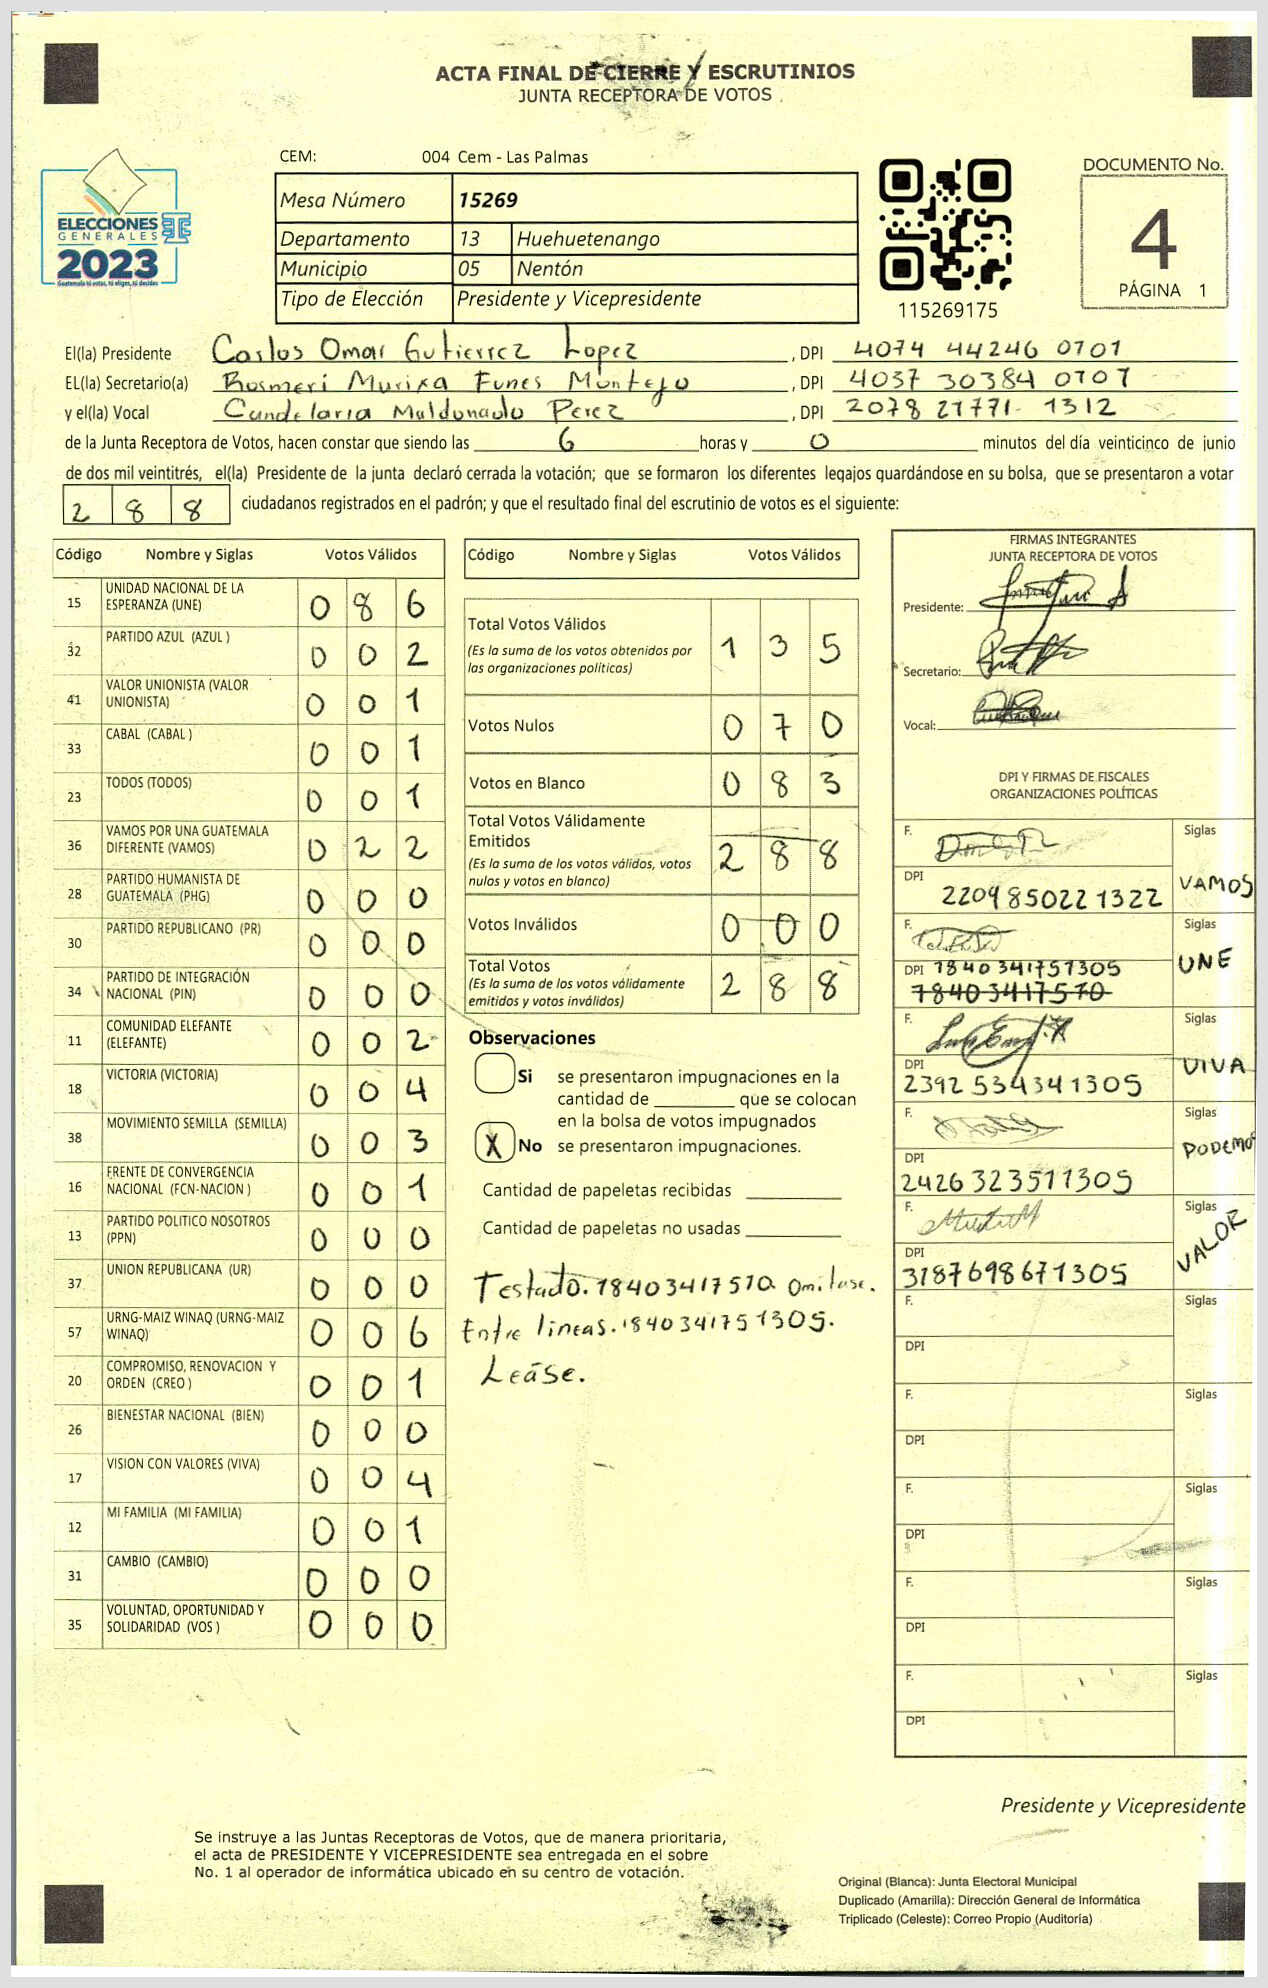 ACTA FINAL DE CIERRE Y ESCRUTINIOS
JUNTA RECEPTORA DE VOTOS
CEM: 004 Cem - Las Palmas
ELECCIONES
GENERALES
2023
Guatemala tú votas, tú eliges, tú decides
Mesa Número 15269
Departamento 13 Huehuetenango
Municipio 05 Nentón
Tipo de Elección Presidente y Vicepresidente
115269175
DOCUMENTO No.
4
PÁGINA 1
El(la) Presidente Carlos Omar Gutierrez Lopez , DPI 4074 44246 0701
EL(la) Secretario(a) Rosmeri Murixa Funes Montejo , DPI 4037 30384 0707
y el(la) Vocal Candelaria Maldonado Perez , DPI 2078 21771 1312
de la Junta Receptora de Votos, hacen constar que siendo las 6 horas y 0 minutos del día veinticinco de junio
de dos mil veintitrés, el(la) Presidente de la junta declaró cerrada la votación; que se formaron los diferentes legajos guardándose en su bolsa, que se presentaron a votar
2 8 8 ciudadanos registrados en el padrón; y que el resultado final del escrutinio de votos es el siguiente:
Código Nombre y Siglas Votos Válidos
15 UNIDAD NACIONAL DE LA
ESPERANZA (UNE) 0 8 6
32 PARTIDO AZUL (AZUL ) 0 0 2
41 VALOR UNIONISTA (VALOR
UNIONISTA) 0 0 1
33 CABAL (CABAL ) 0 0 1
23 TODOS (TODOS) 0 0 1
36 VAMOS POR UNA GUATEMALA
DIFERENTE (VAMOS) 0 2 2
28 PARTIDO HUMANISTA DE
GUATEMALA (PHG) 0 0 0
30 PARTIDO REPUBLICANO (PR) 0 0 0
34 PARTIDO DE INTEGRACIÓN
NACIONAL (PIN) 0 0 0
11 COMUNIDAD ELEFANTE
(ELEFANTE) 0 0 2
18 VICTORIA (VICTORIA) 0 0 4
38 MOVIMIENTO SEMILLA (SEMILLA) 0 0 3
16 FRENTE DE CONVERGENCIA
NACIONAL (FCN-NACION ) 0 0 1
13 PARTIDO POLITICO NOSOTROS
(PPN) 0 0 0
37 UNION REPUBLICANA (UR) 0 0 0
57 URNG-MAIZ WINAQ (URNG-MAIZ
WINAQ) 0 0 6
20 COMPROMISO, RENOVACION Y
ORDEN (CREO ) 0 0 1
26 BIENESTAR NACIONAL (BIEN) 0 0 0
17 VISION CON VALORES (VIVA) 0 0 4
12 MI FAMILIA (MI FAMILIA) 0 0 1
31 CAMBIO (CAMBIO) 0 0 0
35 VOLUNTAD, OPORTUNIDAD Y
SOLIDARIDAD (VOS ) 0 0 0
Código Nombre y Siglas Votos Válidos
Total Votos Válidos 1 3 5
(Es la suma de los votos obtenidos por
las organizaciones políticas)
Votos Nulos 0 7 0
Votos en Blanco 0 8 3
Total Votos Válidamente
Emitidos 2 8 8
(Es la suma de los votos válidos, votos
nulos y votos en blanco)
Votos Inválidos 0 0 0
Total Votos 2 8 8
(Es la suma de los votos válidamente
emitidos y votos inválidos)
Observaciones
Si se presentaron impugnaciones en la
cantidad de ________ que se colocan
en la bolsa de votos impugnados
X No se presentaron impugnaciones.
Cantidad de papeletas recibidas
Cantidad de papeletas no usadas
Testado. 18403417510. Omitase.
Entre lineas. 1840341751305.
Leáse.
FIRMAS INTEGRANTES
JUNTA RECEPTORA DE VOTOS
Presidente:
Secretario:
Vocal:
DPI Y FIRMAS DE FISCALES
ORGANIZACIONES POLÍTICAS
F. Siglas
DPI 2209850221322 VAMOS
F. Siglas
DPI 1840341751305 UNE
78403417570
F. Siglas
DPI 2392534341305 VIVA
F. Siglas
DPI 2426323511305 PODEMOS
F. Siglas
DPI 3187698671305 VALOR
F. Siglas
DPI
F. Siglas
DPI
F. Siglas
DPI
F. Siglas
DPI
F. Siglas
DPI
Presidente y Vicepresidente
Se instruye a las Juntas Receptoras de Votos, que de manera prioritaria,
el acta de PRESIDENTE Y VICEPRESIDENTE sea entregada en el sobre
No. 1 al operador de informática ubicado en su centro de votación.
Original (Blanca): Junta Electoral Municipal
Duplicado (Amarilla): Dirección General de Informática
Triplicado (Celeste): Correo Propio (Auditoría)